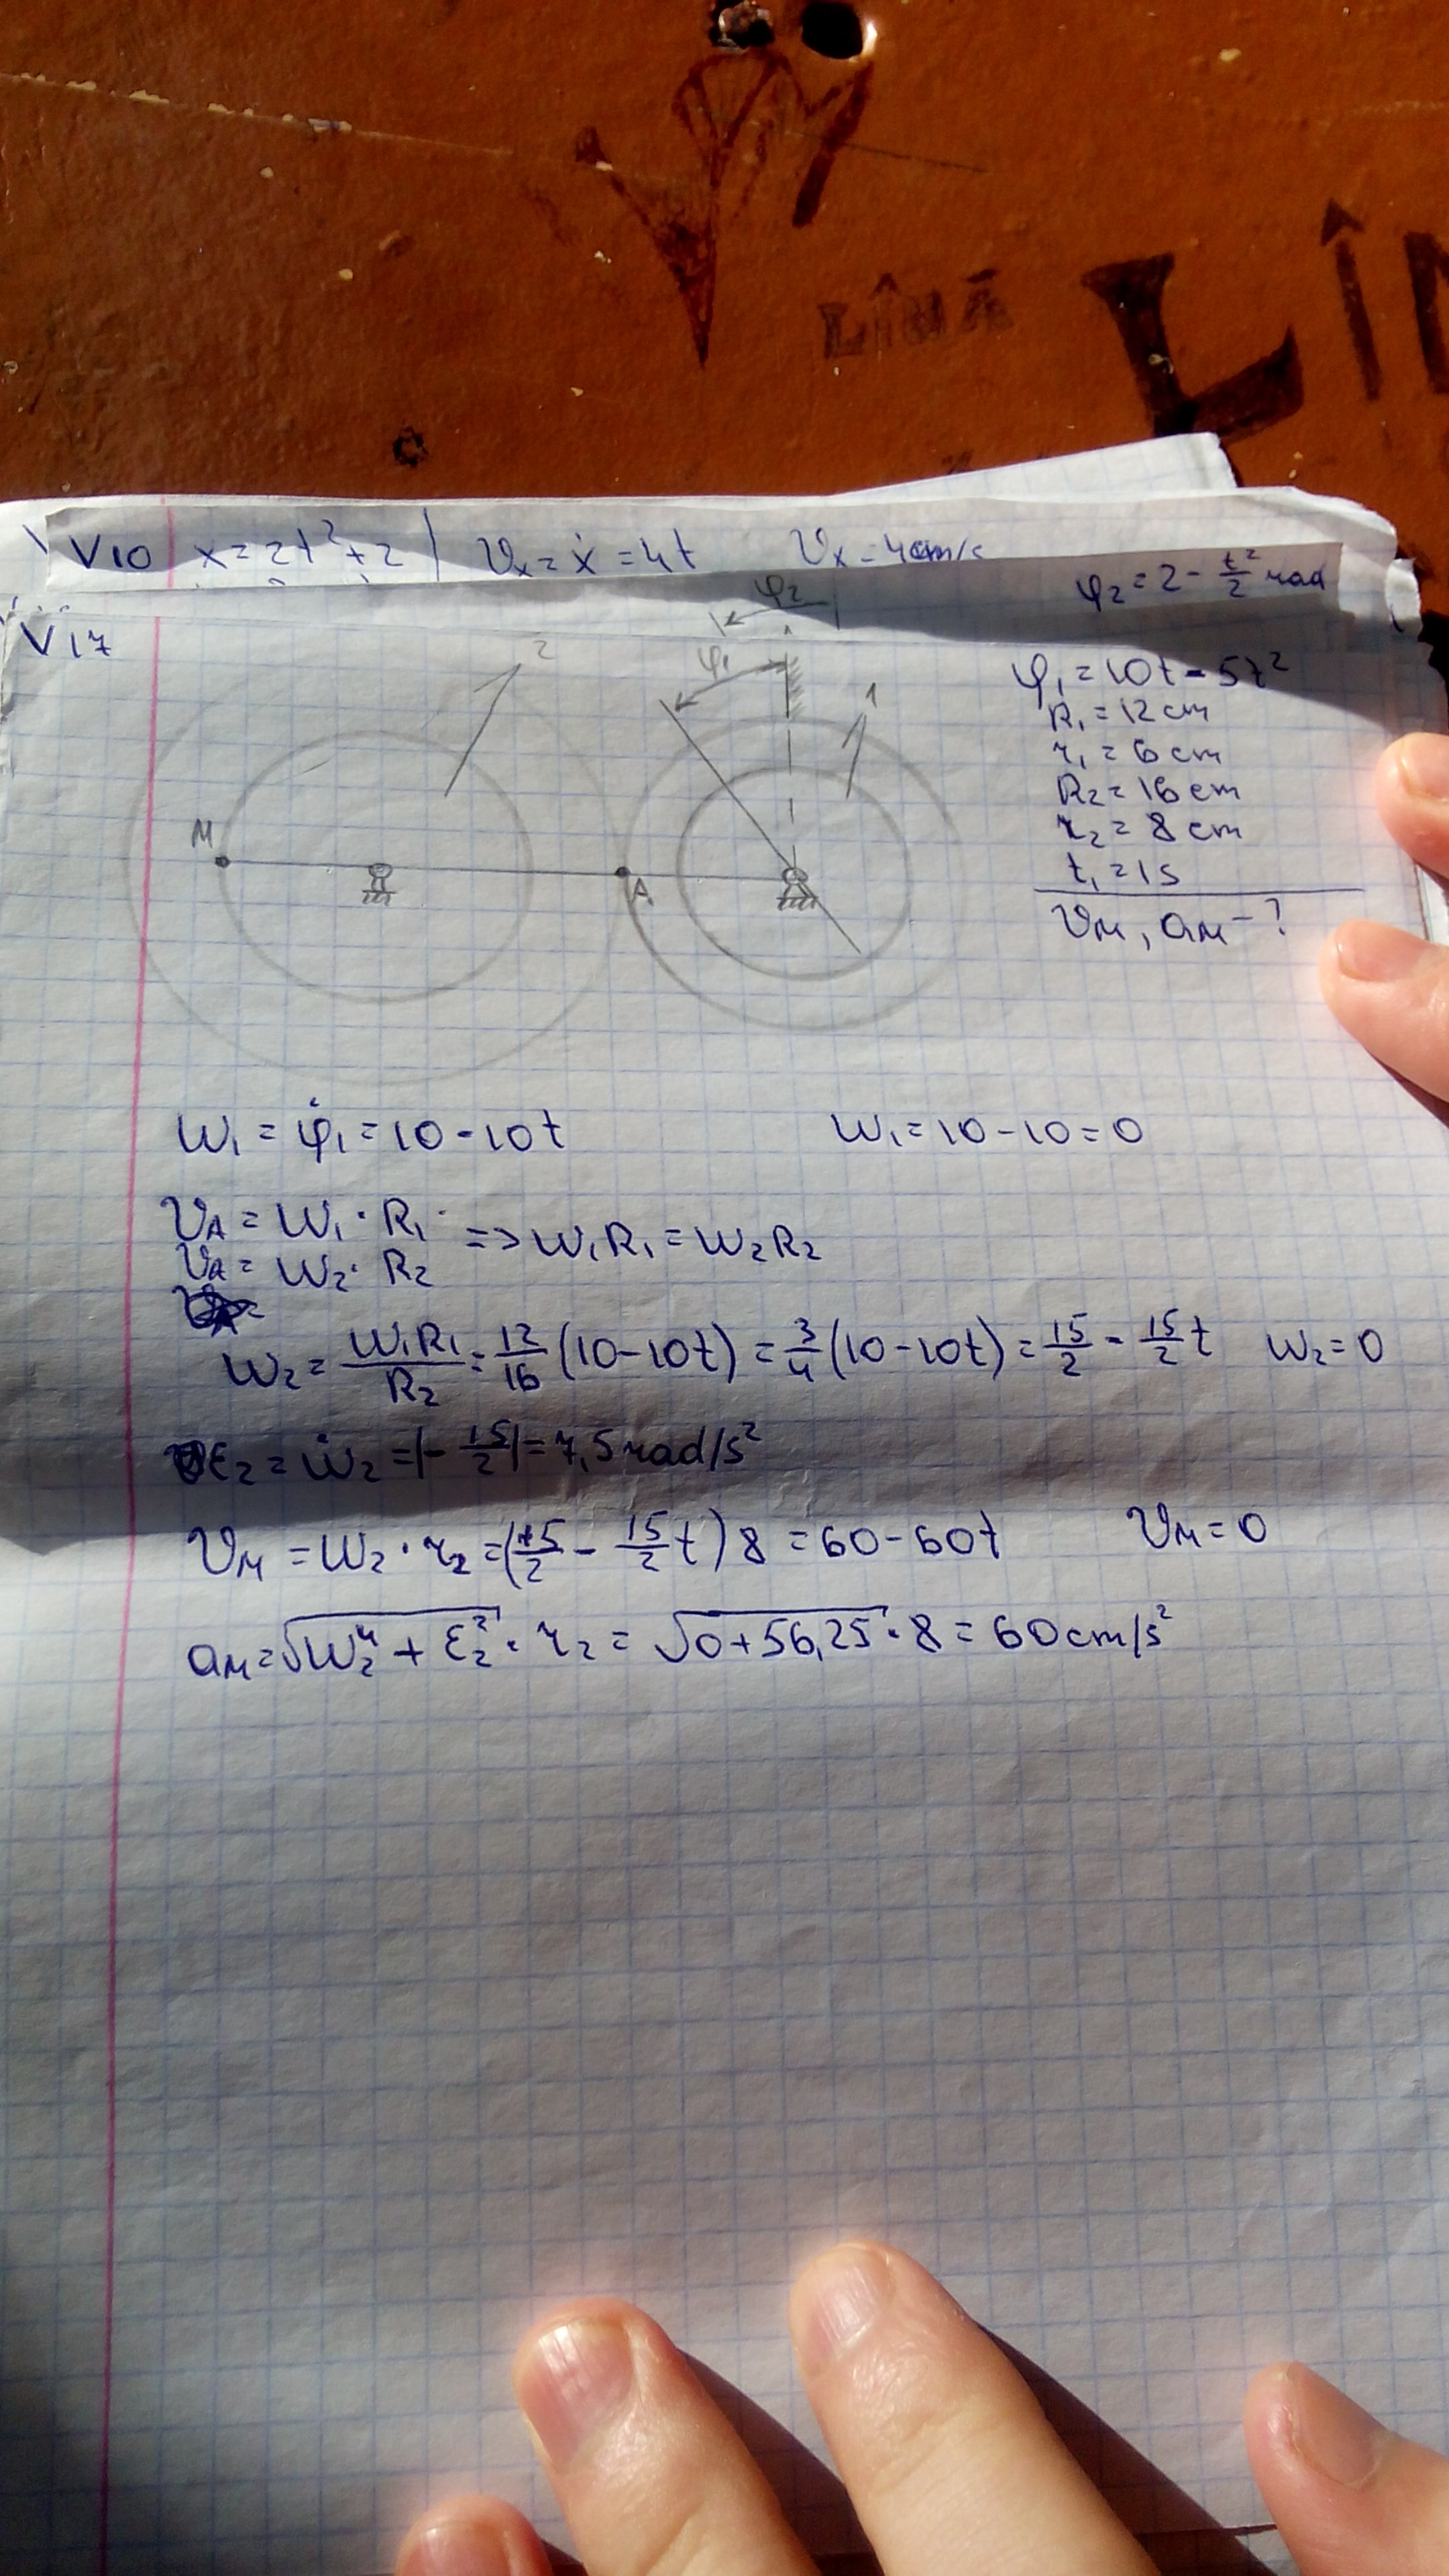 LĪNĀ
LĪN
V10 x = 2t² + 2 Vx = ẋ = 4t Vx = 4cm/s
φ2 φ2 = 2 - t²/2 rad
V17
2
φ1
1
φ1 = 10t - 5t²
R1 = 12 cm
r1 = 6 cm
R2 = 16 cm
r2 = 8 cm
t1 = 1s
VM, aM - ?
M
A
W1 = φ̇1 = 10 - 10t W1 = 10 - 10 = 0
VA = W1 · R1
VA = W2 · R2
=> W1R1 = W2R2
W2 = W1R1/R2 = 12/16 (10 - 10t) = 3/4 (10 - 10t) = 15/2 - 15/2 t W2 = 0
ε2 = ẇ2 = |- 15/2| = 7,5 rad/s²
VM = W2 · r2 = (15/2 - 15/2 t) 8 = 60 - 60t VM = 0
aM = √(W2⁴ + ε2²) · r2 = √(0 + 56,25) · 8 = 60 cm/s²